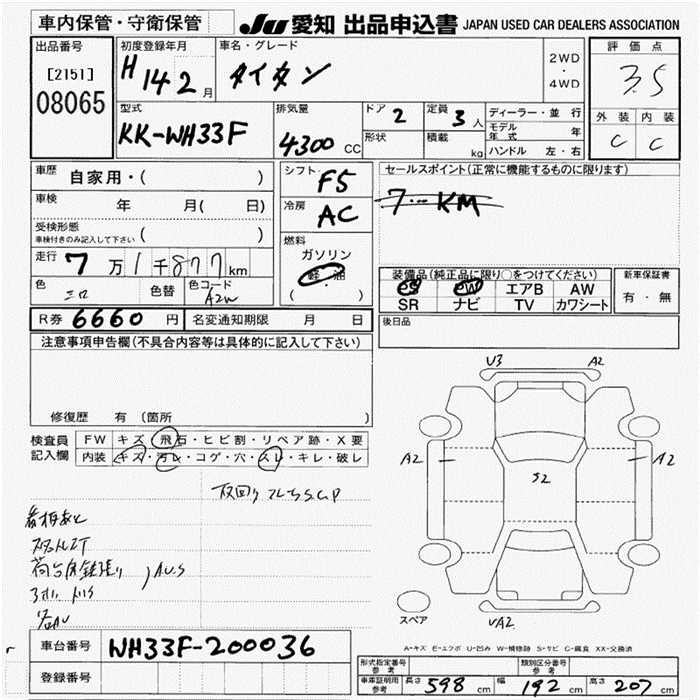 車内保管・守衛保管 JU 愛知 出品申込書 JAPAN USED CAR DEALERS ASSOCIATION
出品番号 [2151] 08065
初度登録年月 H14 2月
車名・グレード タイタン
2WD・4WD
評価点 3.5
外装 内装
C C
型式 KK-WH33F
排気量 4300 CC
ドア 2
形状
定員 3人
積載 kg
ディーラー・並行
モデル年式 年
ハンドル 左・右
車歴 自家用・( )
車検 年 月( 日)
受検形態 ( )
車検付きのみ記入して下さい
走行 7万1千877km
色 色替 色コード A2W
シフト F5
冷房 AC
燃料
ガソリン
軽・油
( )
セールスポイント(正常に機能するものに限ります)
7... KM
装備品(純正品に限り○をつけてください)
PS PW エアB AW
SR ナビ TV カワシート
新車保証書
有・無
R券 6660円 名変通知期限 月 日
後日品
注意事項申告欄(不具合内容等は具体的に記入して下さい)
修復歴 有 (箇所 )
検査員記入欄
FW キズ・飛石・ヒビ割・リペア跡・X要
内装 キズ・汚レ・コゲ・穴・スレ・キレ・破レ
U3 A2
A2 S2 A2
スペア
UA2
A-キズ E-エクボ U-凹み W-補修跡 S-サビ C-腐食 XX-交換済
車台番号 WH33F-200036
登録番号
形式指定番号 参考
類別区分番号 参考
車庫証明用 参考 長さ 598 cm 幅 192 cm 高さ 207 cm